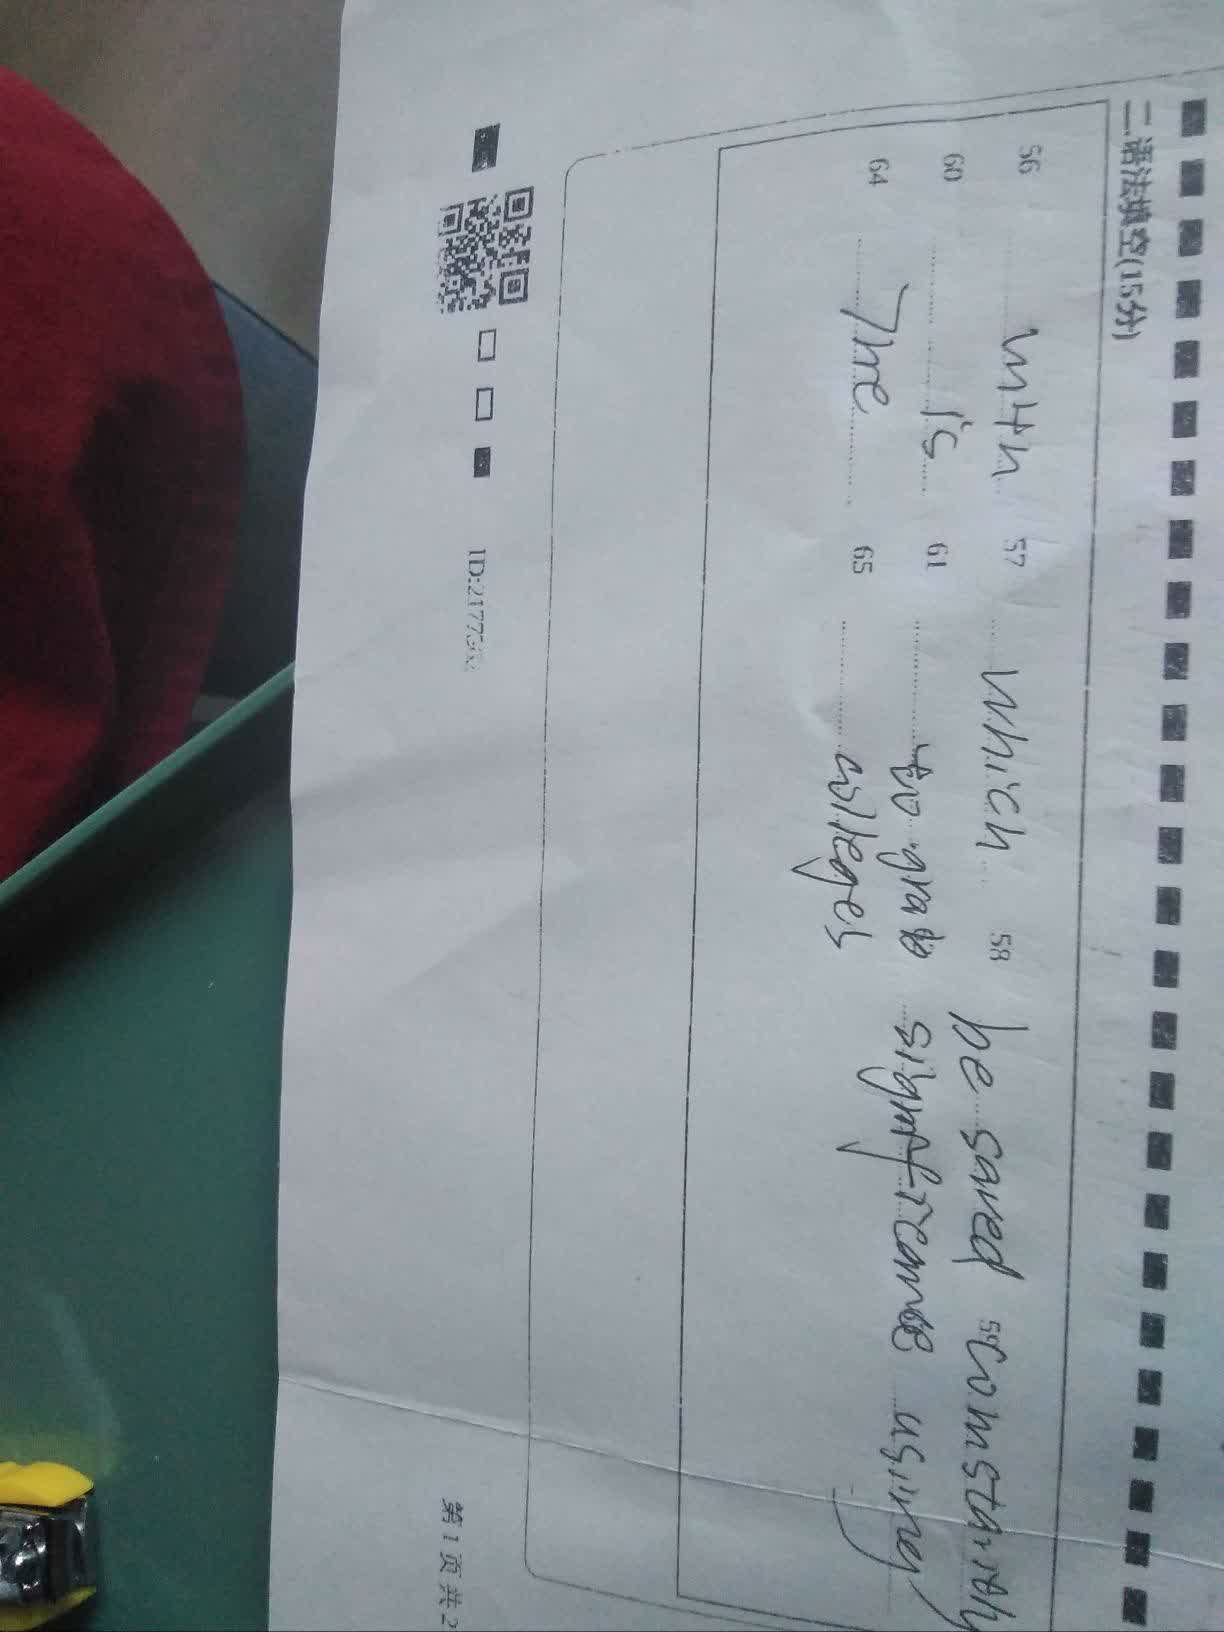 二.语法填空(15分)
56 with 57 which 58 be saved 59 constantly
60 is 61 to grade significance using
64 The 65 colleges
ID:21773
第1页共2